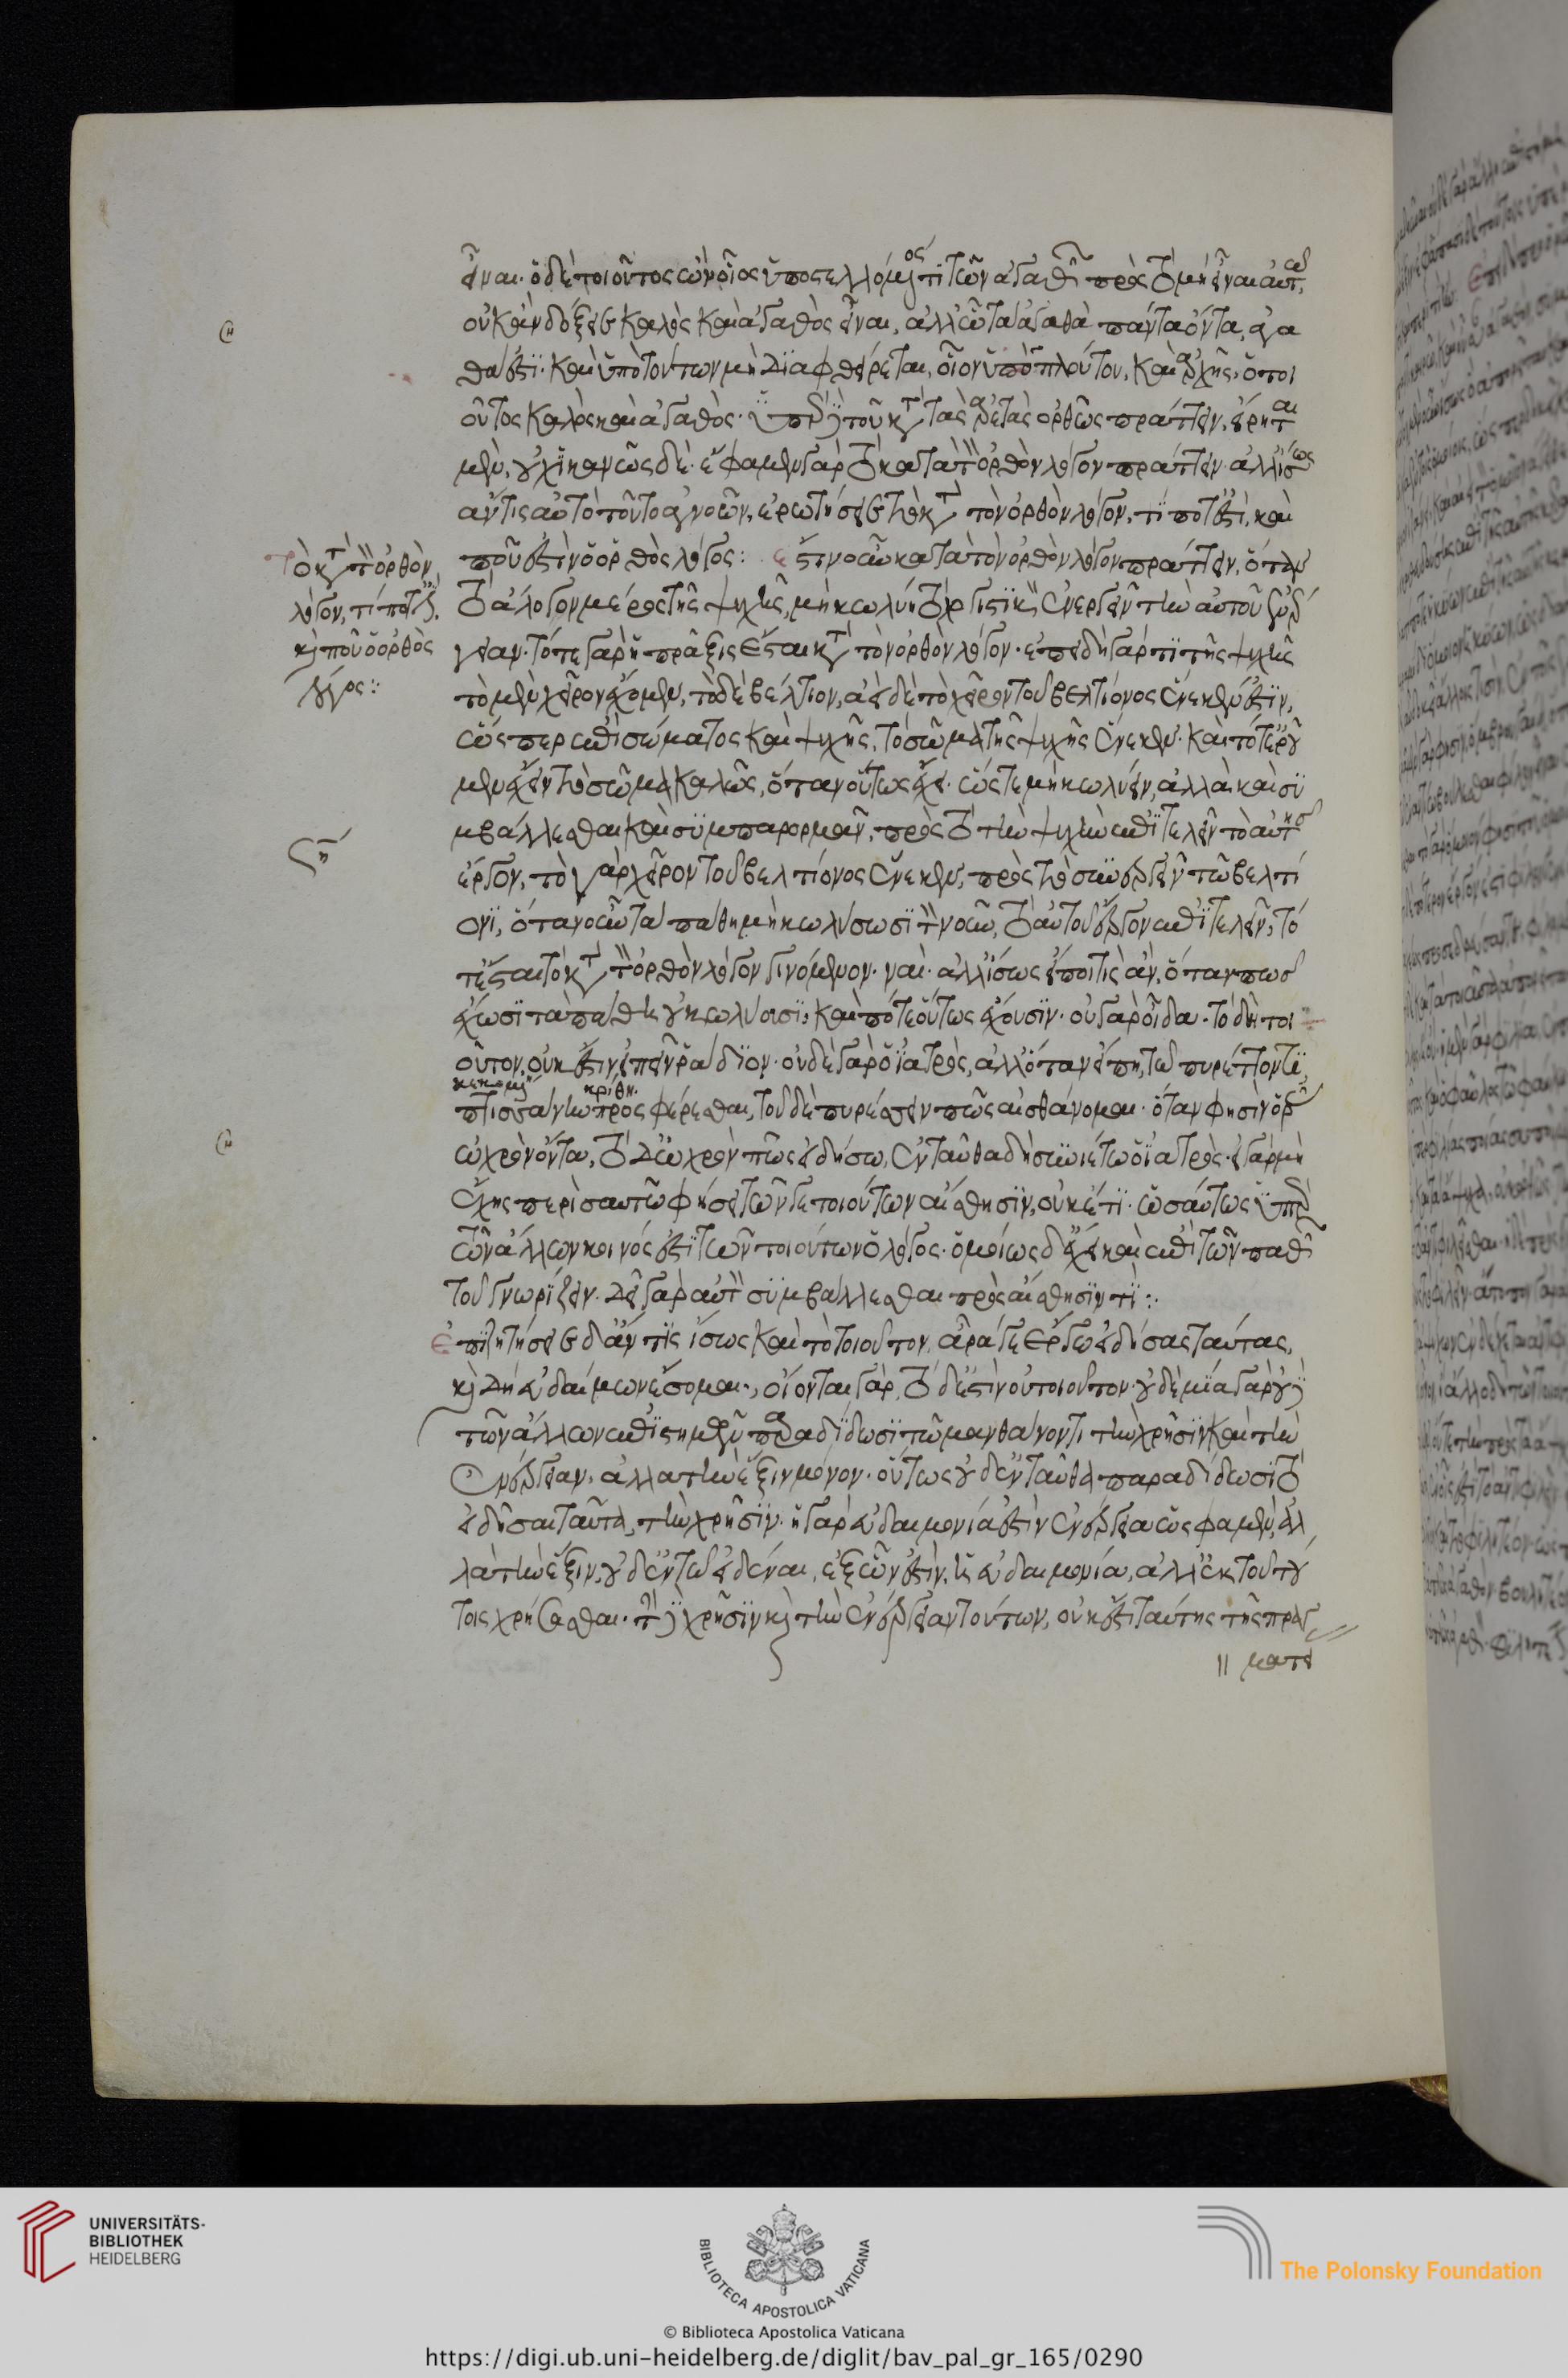 εἶναι. ὁ δὲ τοιοῦτος ὢν οἷος ὑποστελλόμενος τι τῶν ἀγαθῶν πρὸς τὸ μὴ εἶναι αὐτῶ,
οὐκ ἂν δόξειε καλὸς καὶ ἀγαθὸς εἶναι, ἀλλ' ὧ τὰ ἀγαθὰ πάντα ὄντα, ἀγα
θά ἐστι. καὶ ὑπὸ τούτων μὴ διαφθείρεται, οἷον ὑπὸ πλούτου, καὶ ἀρχῆς, ὁ τοι
οῦτος καλὸς καὶ ἀγαθὸς. ὑπὲρ δὲ τοῦ κατὰ τὰς ἀρετὰς ὀρθῶς πράττειν, εἴρηται
μὲν, οὐχ ἱκανῶς δέ. ἔφαμεν γὰρ τὸ κατὰ τὸν ὀρθὸν λόγον πράττειν. ἀλλ' ἴσως
ἄν τις αὐτὸ τοῦτο ἀγνοῶν, ἐρωτήσειε τὸ κατὰ τὸν ὀρθὸν λόγον, τί ποτ' ἐστὶ, καὶ
ποῦ ἐστὶν ὁ ὀρθὸς λόγος: ἔστιν οὖν κατὰ τὸν ὀρθὸν λόγον πράττειν, ὅταν
τὸ ἄλογον μέρος τῆς ψυχῆς, μὴ κωλύη τὸ λογιστικὸν ἐνεργεῖν τὴν αὐτοῦ ἐνέρ
γειαν. τότε γὰρ ἡ πρᾶξις ἔσται κατὰ τὸν ὀρθὸν λόγον. ἐπειδὴ γάρ τι τῆς ψυχῆς
τὸ μὲν χεῖρον ἔχομεν, τὸ δὲ βέλτιον, ἀεὶ δὲ τὸ χεῖρον τοῦ βελτίονος ἕνεκέν ἐστιν,
ὥσπερ ἐπὶ σώματος καὶ ψυχῆς, τὸ σῶμα τῆς ψυχῆς ἕνεκεν. καὶ τότ' ἐροῦ
μεν ἔχειν τὸ σῶμα καλῶς, ὅταν οὕτως ἔχη. ὥστε μὴ κωλύειν, ἀλλὰ καὶ συ
μβάλλεσθαι καὶ συμπαρορμᾶν, πρὸς τὸ τὴν ψυχὴν ἐπιτελεῖν τὸ αὐτῆς
ἔργον, τὸ γὰρ χεῖρον τοῦ βελτίονος ἕνεκεν, πρὸς τὸ συνεργεῖν τῶ βελτί
ονι, ὅταν οὖν τὰ πάθη μὴ κωλύσωσι τὸν νοῦν, τὸ αὐτοῦ ἔργον ἐπιτελεῖν, τό
τ' ἔσται τὸ κατὰ τὸν ὀρθὸν λόγον γινόμενον. ναί. ἀλλ' ἴσως εἴποι τις ἂν, ὅταν πως
ἔχωσι τὰ πάθη οὐ κωλύουσι, καὶ πότε οὕτως ἔχουσιν. οὐ γὰρ οἶδα. τὸ δὴ τοι
οῦτον, οὐκ ἔστιν εἰπεῖν ῥάδιον. οὐδὲ γὰρ ὁ ἰατρὸς, ἀλλ' ὅταν εἴπη, τῶ πυρέττοντι,
πτισσάνην προσφέρεσθαι, τοῦ δὲ πυρέσσειν πῶς αἰσθάνομαι. ὅταν φησὶν ὁρᾶς
ὠχρὸν ὄντα, τὸ δὲ ὠχρὸν πῶς εἰδήσω, ἐνταῦθα δὴ συνιέτω ὁ ἰατρὸς. εἰ γὰρ μὴ
ἔχεις περὶ σαυτῶ φήσει τῶν γε τοιούτων αἴσθησιν, οὐκέτι. ὡσαύτως ὑπὲρ
τῶν ἄλλων κοινός ἐστι τῶν τοιούτων ὁ λόγος. ὁμοίως δ' ἔχει καὶ ἐπὶ τῶν παθῶν
τοῦ γνωρίζειν. δεῖ γὰρ αὐτὸν συμβάλλεσθαι πρὸς αἴσθησίν τι:
ἐπιζητήσειε δ' ἄν τις ἴσως καὶ τὸ τοιοῦτον, ἆρά γε ἔργω εἰδήσας ταύτας,
καὶ δὴ εὐδαίμων ἔσομαι, οἴονται γάρ. τὸ δ' ἐστὶν οὐ τοιοῦτον. οὐδεμία γὰρ οὐδὲ
τῶν ἄλλων ἐπιστημῶν παραδίδωσι τῶ μανθάνοντι τὴν χρῆσιν καὶ τὴν
ἐνέργειαν, ἀλλὰ τὴν ἕξιν μόνον. οὕτως οὐδ' ἐνταῦθα παραδίδωσι τὸ
εἰδῆσαι ταῦτα, τὴν χρῆσιν. ἡ γὰρ εὐδαιμονία ἐστὶν ἐνέργεια ὥς φαμεν, ἀλ
λὰ τὴν ἕξιν, οὐδ' ἐν τῶ εἰδέναι, ἐξ ὧν ἐστὶν, ἡ εὐδαιμονία, ἀλλ' ἐκ τοῦ τού
τοις χρήσασθαι. τὴν δὲ χρῆσιν καὶ τὴν ἐνέργειαν τούτων, οὐκ ἔστι ταύτης τῆς πραγ
ματεί
τὸ κατὰ τὸν ὀρθὸν
λόγον, τί ποτ' ἐστὶ,
καὶ ποῦ ὁ ὀρθὸς
λόγος:
UNIVERSITÄTS-
BIBLIOTHEK
HEIDELBERG
BIBLIOTECA APOSTOLICA VATICANA
© Biblioteca Apostolica Vaticana
The Polonsky Foundation
https://digi.ub.uni-heidelberg.de/diglit/bav_pal_gr_165/0290